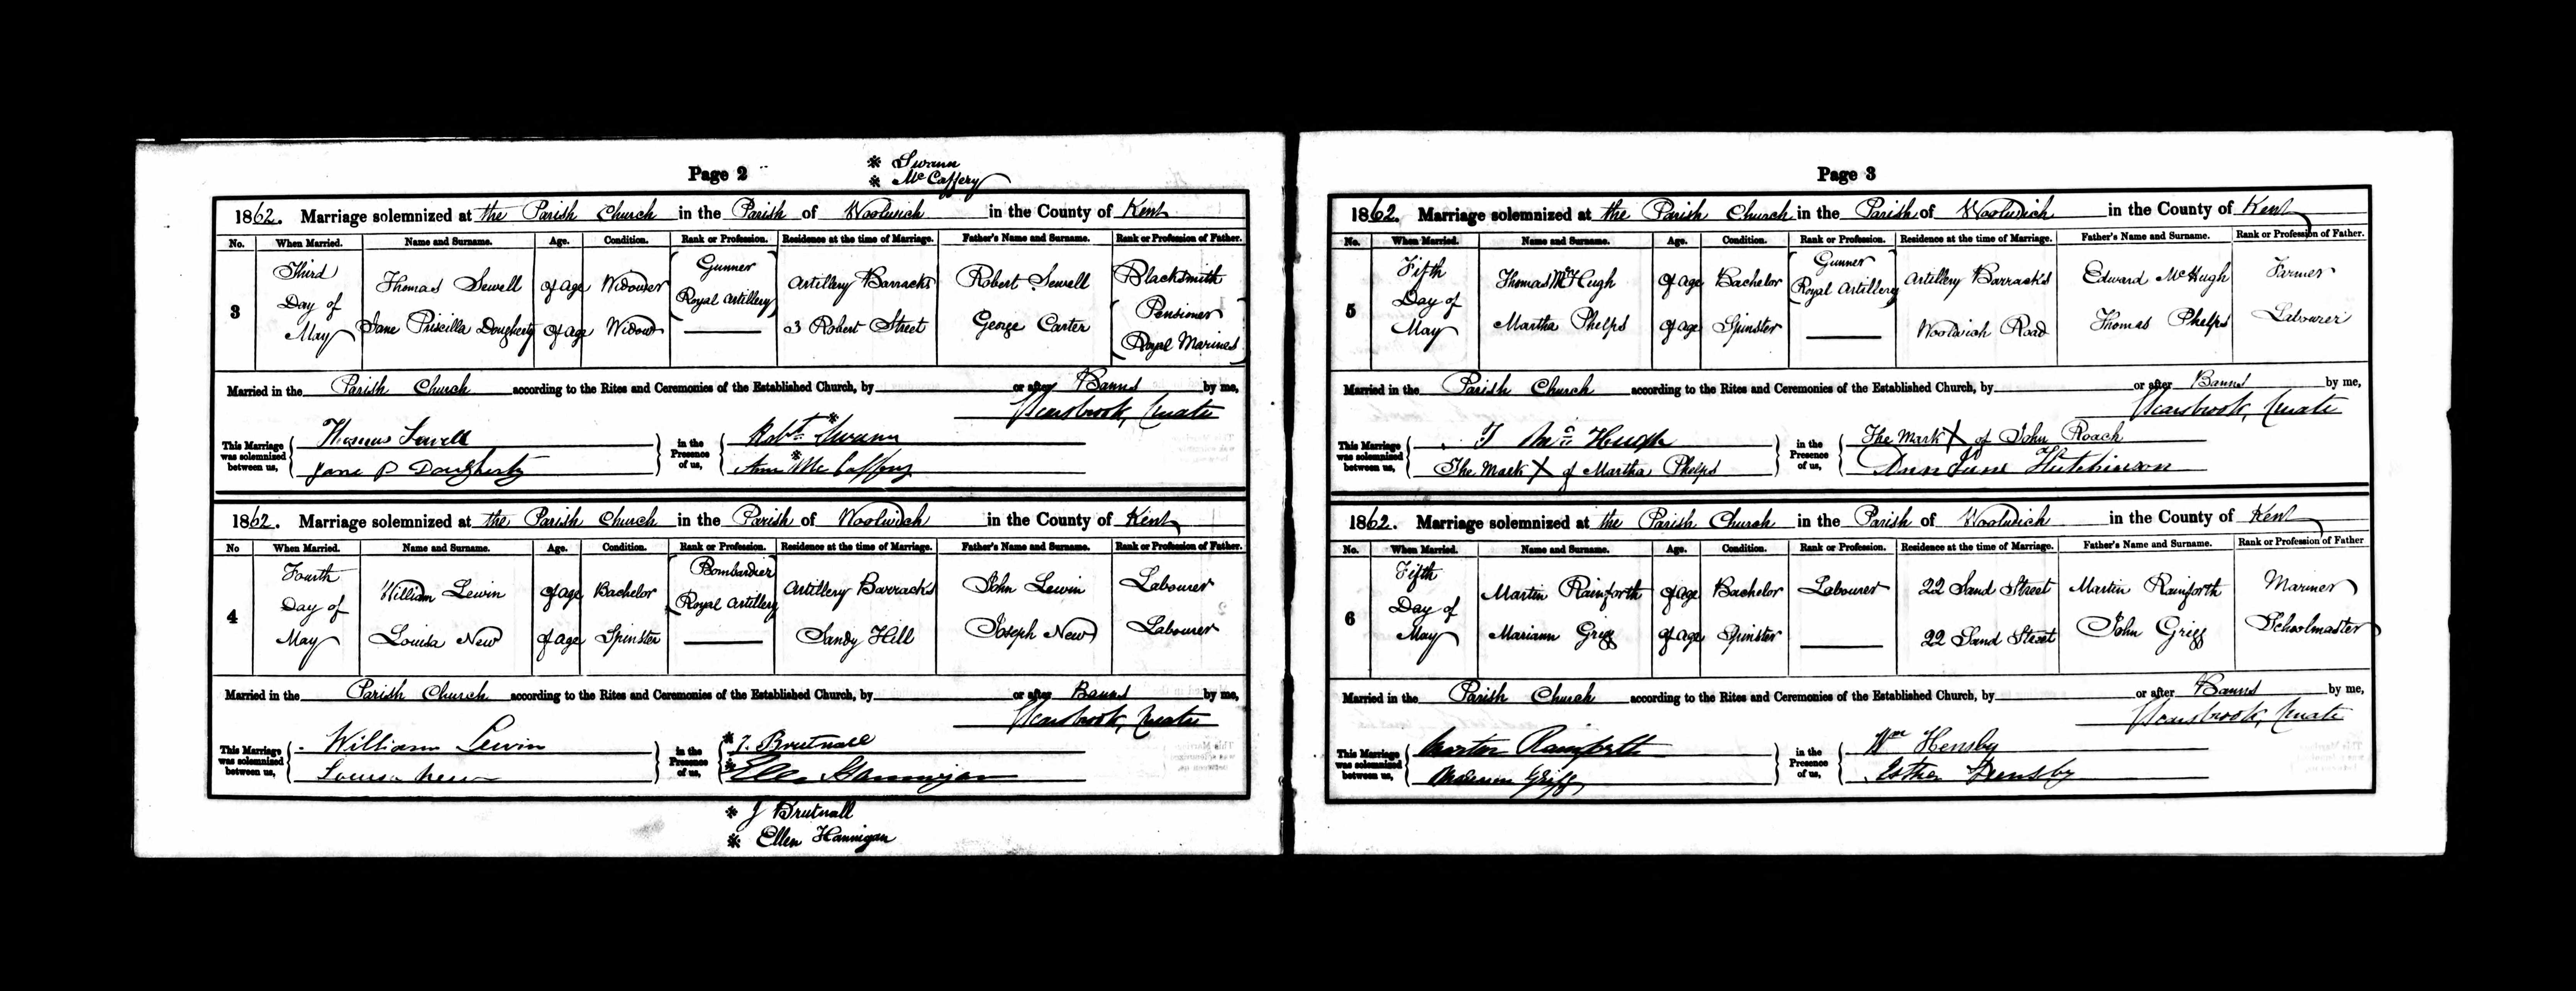 Page 2
* Swann
* McCaffery
1862. Marriage solemnized at the Parish Church in the Parish of Woolwich in the County of Kent
No. When Married. Name and Surname. Age. Condition. Rank or Profession. Residence at the time of Marriage. Father's Name and Surname. Rank or Profession of Father.
3 Third Day of May
Thomas Sewell of age Widower Gunner Royal Artillery Artillery Barracks Robert Sewell Blacksmith
Jane Priscilla Dougherty of age Widow — 3 Robert Street George Carter Pensioner Royal Marines
Married in the Parish Church according to the Rites and Ceremonies of the Established Church, by or after Banns by me,
Scarsbrook, Curate
This Marriage was solemnized between us,
Thomas Sewell
Jane P Dougherty
in the Presence of us,
Robt. * Swann
Ann * McCaffery
1862. Marriage solemnized at the Parish Church in the Parish of Woolwich in the County of Kent
No When Married. Name and Surname. Age. Condition. Rank or Profession. Residence at the time of Marriage. Father's Name and Surname. Rank or Profession of Father.
4 Fourth Day of May
William Lewin of age Bachelor Bombardier Royal Artillery Artillery Barracks John Lewin Labourer
Louisa New of age Spinster — Sandy Hill Joseph New Labourer
Married in the Parish Church according to the Rites and Ceremonies of the Established Church, by or after Banns by me,
Scarsbrook, Curate
This Marriage was solemnized between us,
William Lewin
Louisa New
in the Presence of us,
* J. Brutnall
* Ellen Hannigan
* J Brutnall
* Ellen Hannigan
Page 3
1862. Marriage solemnized at the Parish Church in the Parish of Woolwich in the County of Kent
No. When Married. Name and Surname. Age. Condition. Rank or Profession. Residence at the time of Marriage. Father's Name and Surname. Rank or Profession of Father.
5 Fifth Day of May
Thomas McHugh of age Bachelor Gunner Royal Artillery Artillery Barracks Edward McHugh Farmer
Martha Phelps of age Spinster — Woolwich Road Thomas Phelps Labourer
Married in the Parish Church according to the Rites and Ceremonies of the Established Church, by or after Banns by me,
Scarsbrook, Curate
This Marriage was solemnized between us,
T McHugh
The Mark X of Martha Phelps
in the Presence of us,
The Mark X of John Roach
Ann Jane Hutchinson
1862. Marriage solemnized at the Parish Church in the Parish of Woolwich in the County of Kent
No. When Married. Name and Surname. Age. Condition. Rank or Profession. Residence at the time of Marriage. Father's Name and Surname. Rank or Profession of Father
6 Fifth Day of May
Martin Rainforth of age Bachelor Labourer 22 Sand Street Martin Rainforth Mariner
Mariann Grigg of age Spinster — 22 Sand Street John Grigg Schoolmaster
Married in the Parish Church according to the Rites and Ceremonies of the Established Church, by or after Banns by me,
Scarsbrook, Curate
This Marriage was solemnized between us,
Martin Rainforth
Mariann Grigg
in the Presence of us,
Wm Hensby
Esther Hensby